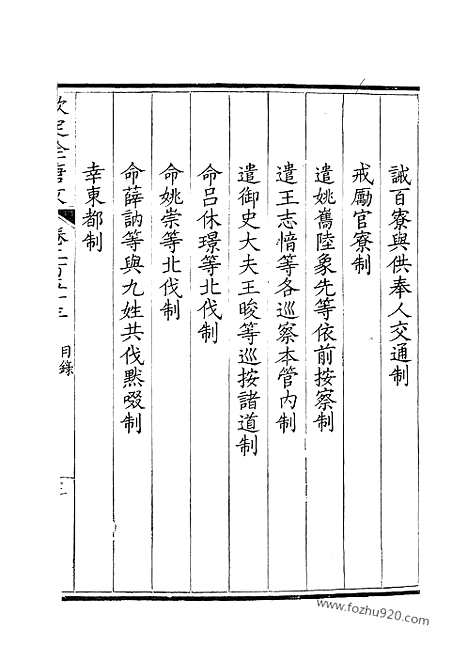 誡百寮與供奉人交通制
戒勵官寮制
遣姚巂陸象先等依前按察制
遣王志愔等各巡察本管內制
遣御史大夫王晙等巡按諸道制
命呂休璟等北伐制
命姚崇等北伐制
命薛訥等與九姓共伐默啜制
幸東都制
欽定全唐文 卷二百五十三 目錄 三
www.fozhu920.com